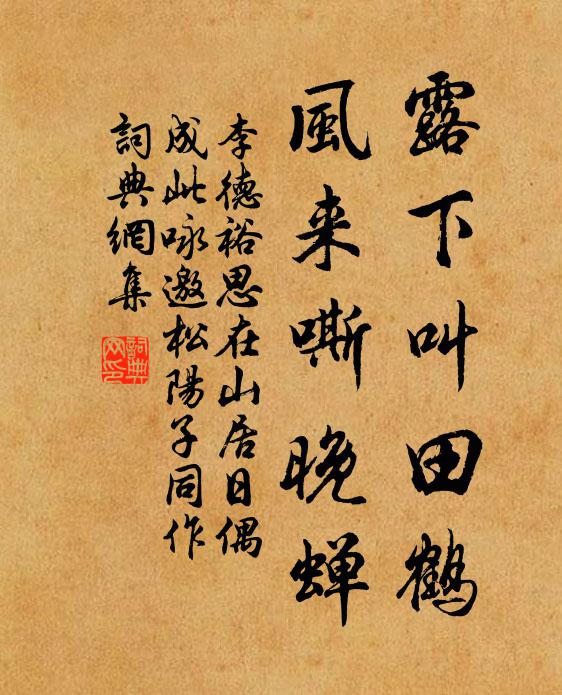 露下叫田鶴
風来嘶晚蝉
李德裕思在山居日偶
成此咏邀松陽子同作
詞典網集
詞典网印